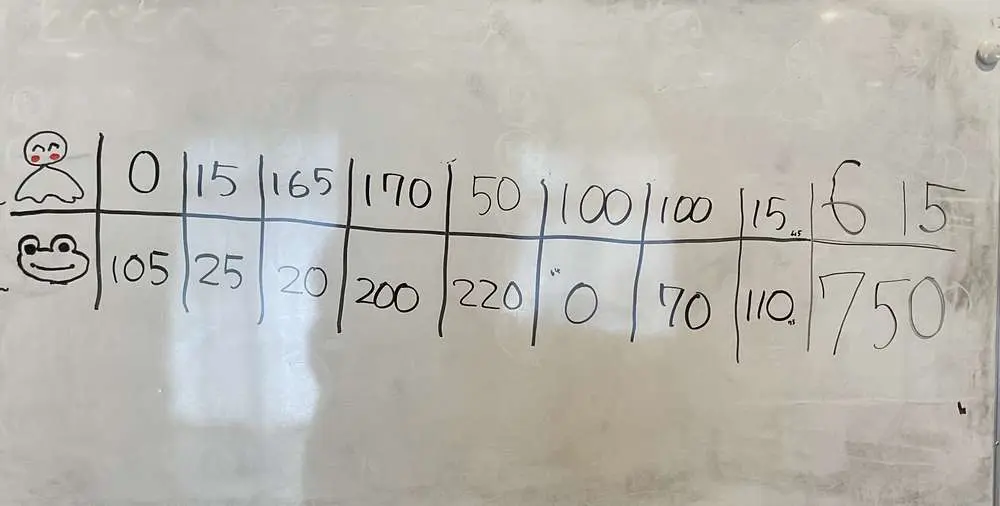 0 15 165 170 50 100 100 15 615
105 25 20 200 220 0 70 110 750